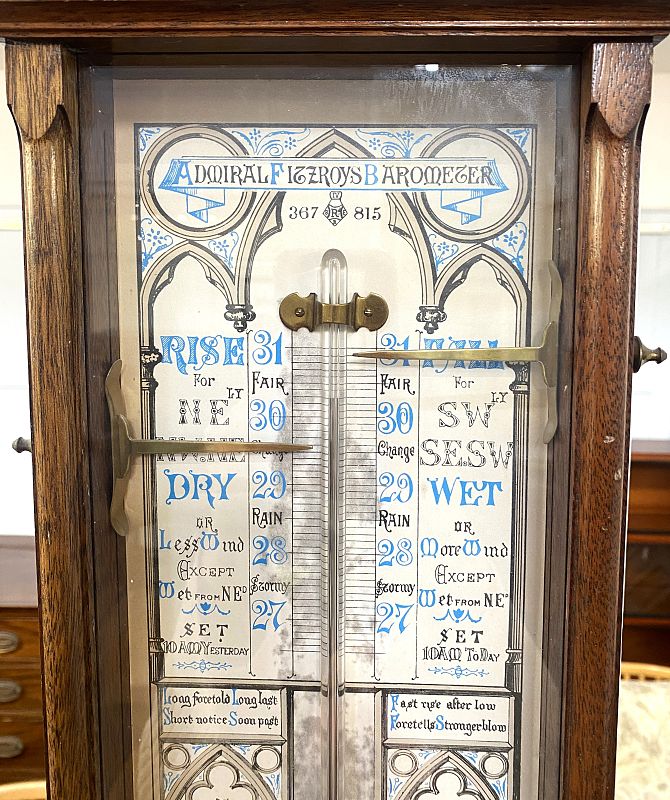 ADMIRAL FITZROYS BAROMETER
367 815
RISE
For
LY
NE
NW.NE
DRY
OR
Less Wind
EXCEPT
Wet FROM NE^D
SET
10 AM YESTERDAY
31
FAIR
30
Change
29
RAIN
28
Stormy
27
31
FAIR
30
Change
29
RAIN
28
Stormy
27
For
LY
SW
SE.SW
WET
OR
More Wind
EXCEPT
Wet FROM NE^D
SET
10 AM ToDAY
Long foretold Long last
Short notice Soon past
Fast rise after low
Foretells Stronger blow